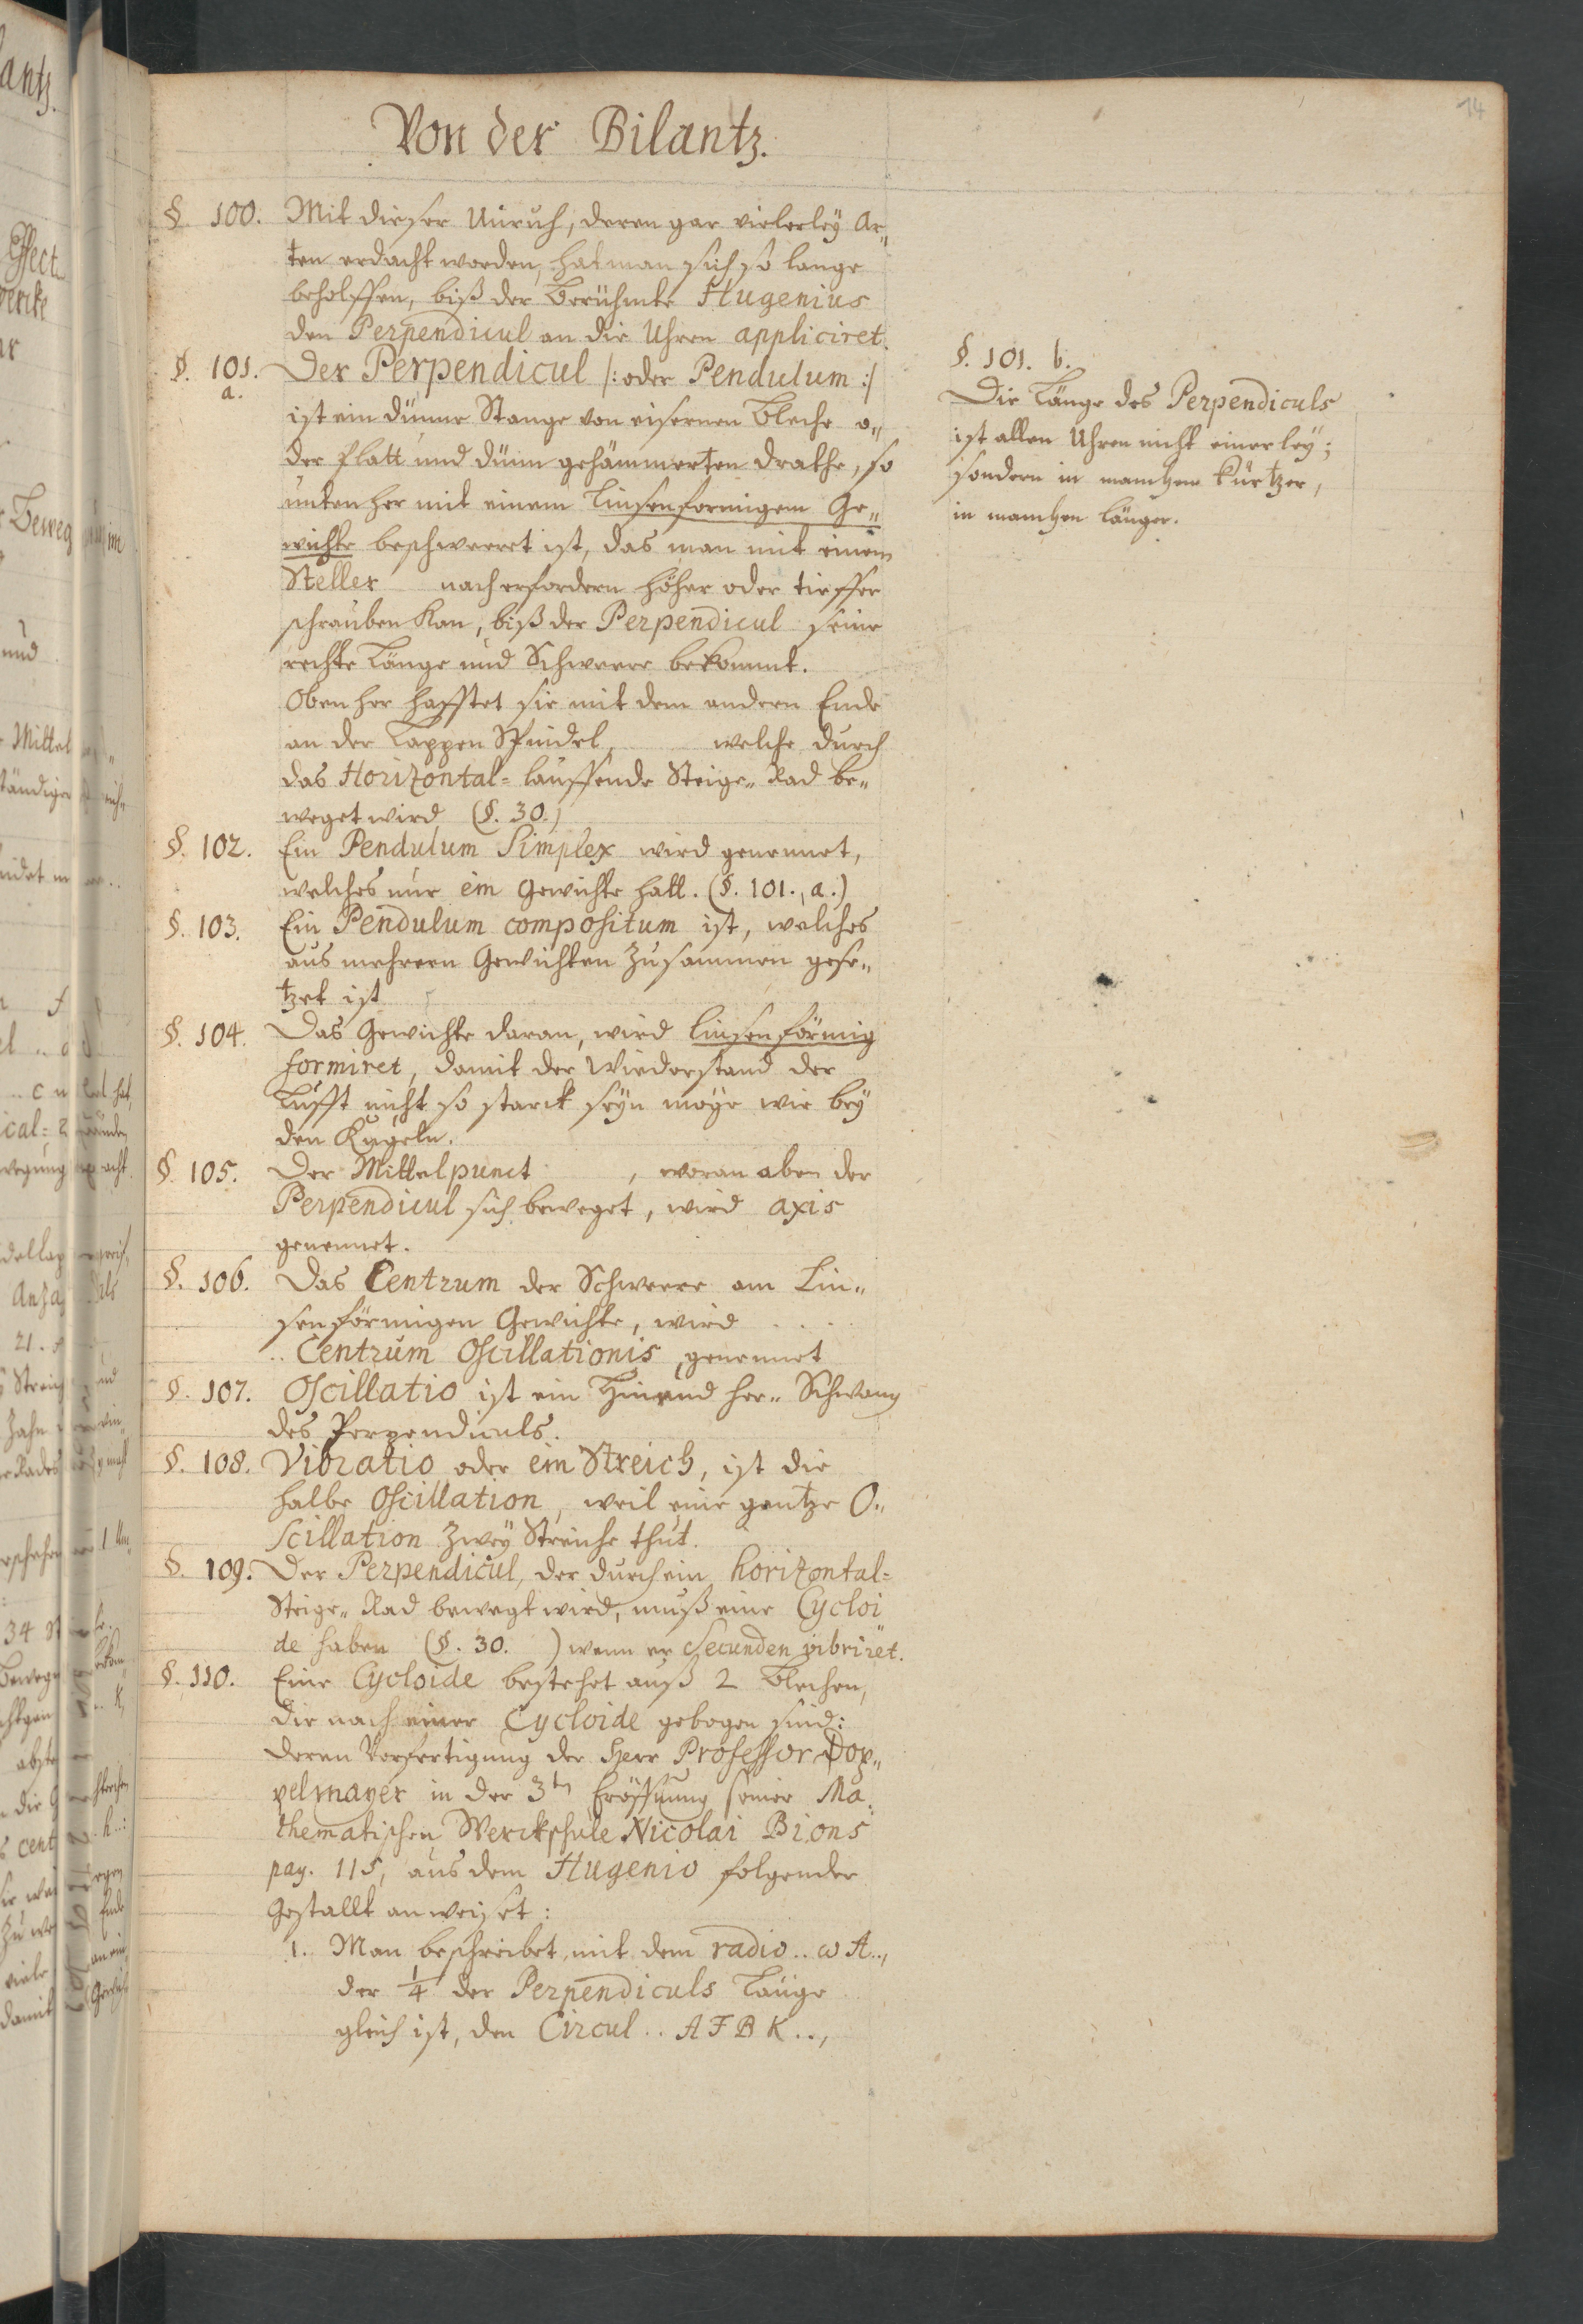 14
Von der Bilantz.
§. 100. Mit dieser Unruh, deren gar vielerleÿ Ar„
ten erdacht worden, hat man sich so lange
beholffen, biß der berühmte Hugenius
den Perpendicul an die Uhren appliciret.
§. 101. a. Der Perpendicul /: oder Pendulum :/
ist ein dünne Stange von eisernen Bleche o„
der platt und dünn gehämmerten Drathe, so
unten her mit einem linsenformigem Ge„
wichte beschweeret ist, das man mit einem
Steller nach erfordern höher oder tieffer
schrauben kan, biß der Perpendicul seine
rechte Länge und Schweere bekommt.
Oben her hafftet sie mit dem andern Ende
an der Lappen Spindel, welche durch
das Horizontal= lauffende Steige„ Rad be„
weget wird (§. 30.)
§. 102. Ein Pendulum Simplex wird genennet,
welches nur ein Gewichte hatt. (§. 101., a.)
§. 103. Ein Pendulum compositum ist, welches
aus mehrern Gewichten zusammen gese„
tzet ist
§. 104. Das Gewichte daran, wird linsenförmig
formiret, damit der Wiederstand der
Lufft nicht so starck seÿn möge wie beÿ
den Kugeln.
§. 105. Der Mittelpunct , woran oben der
Perpendicul sich beweget, wird axis
genennet.
§. 106. Das Centrum der Schweere am Lin„
senförmigen Gewichte, wird . . .
.. Centrum Oscillationis genennet
§. 107. Oscillatio ist ein Hin und her„ Schwang
des Perpendiculs.
§. 108. Vibratio oder ein Streich, ist die
halbe Oscillation, weil eine gantze O„
scillation zweÿ Streiche thut.
§. 109. Der Perpendicul, der durch ein horizontal=
Steige„ Rad bewegt wird, muß eine Cycloi
de haben (§. 30. ) wenn er Secunden vibriret.
§. 110. Eine Cycloide bestehet auß 2 Blechen,
die nach einer Cycloide gebogen sind:
deren Verfertigung der Herr Professor Dop„
pelmayer in der 3ten Eröffnung seiner Ma„
thematischen Werckschule Nicolai Bions
pag. 115, aus dem Hugenio folgender
Gestallt anweiset:
1. Man beschreibet mit dem radio .. ω A ..,
der 1/4 der Perpendiculs Länge
gleich ist, den Circul .. A F B K ..,
§. 101. b.
Die Länge des Perpendiculs
ist allen Uhren nicht einerleÿ;
sondern in manchem kürtzer,
in manchen länger.